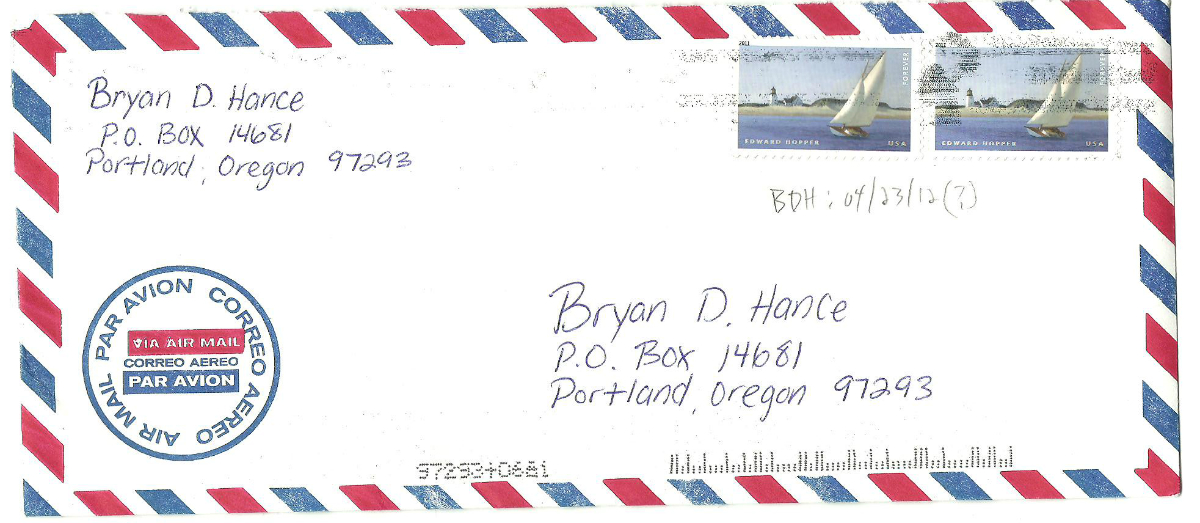 Bryan D. Hance
P.O. Box 14681
Portland, Oregon 97293
2011
FOREVER
EDWARD HOPPER
USA
2011
FOREVER
EDWARD HOPPER
USA
BDH: 04/23/12(?)
Bryan D. Hance
P.O. Box 14681
Portland, Oregon 97293
AIR MAIL PAR AVION CORREO AEREO
VIA AIR MAIL
CORREO AEREO
PAR AVION
97293+0681